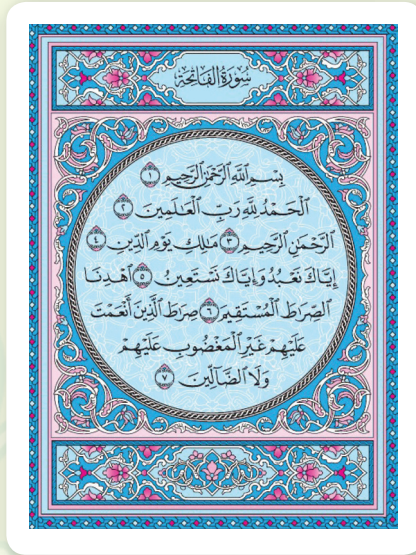 سُورَةُ الْفَاتِحَةِ
بِسْمِ اللَّهِ الرَّحْمَٰنِ الرَّحِيمِ ١
الْحَمْدُ لِلَّهِ رَبِّ الْعَٰلَمِينَ ٢
الرَّحْمَٰنِ الرَّحِيمِ ٣ مَٰلِكِ يَوْمِ الدِّينِ ٤
إِيَّاكَ نَعْبُدُ وَإِيَّاكَ نَسْتَعِينُ ٥ اهْدِنَا
الصِّرَٰطَ الْمُسْتَقِيمَ ٦ صِرَٰطَ الَّذِينَ أَنْعَمْتَ
عَلَيْهِمْ غَيْرِ الْمَغْضُوبِ عَلَيْهِمْ
وَلَا الضَّالِّينَ ٧